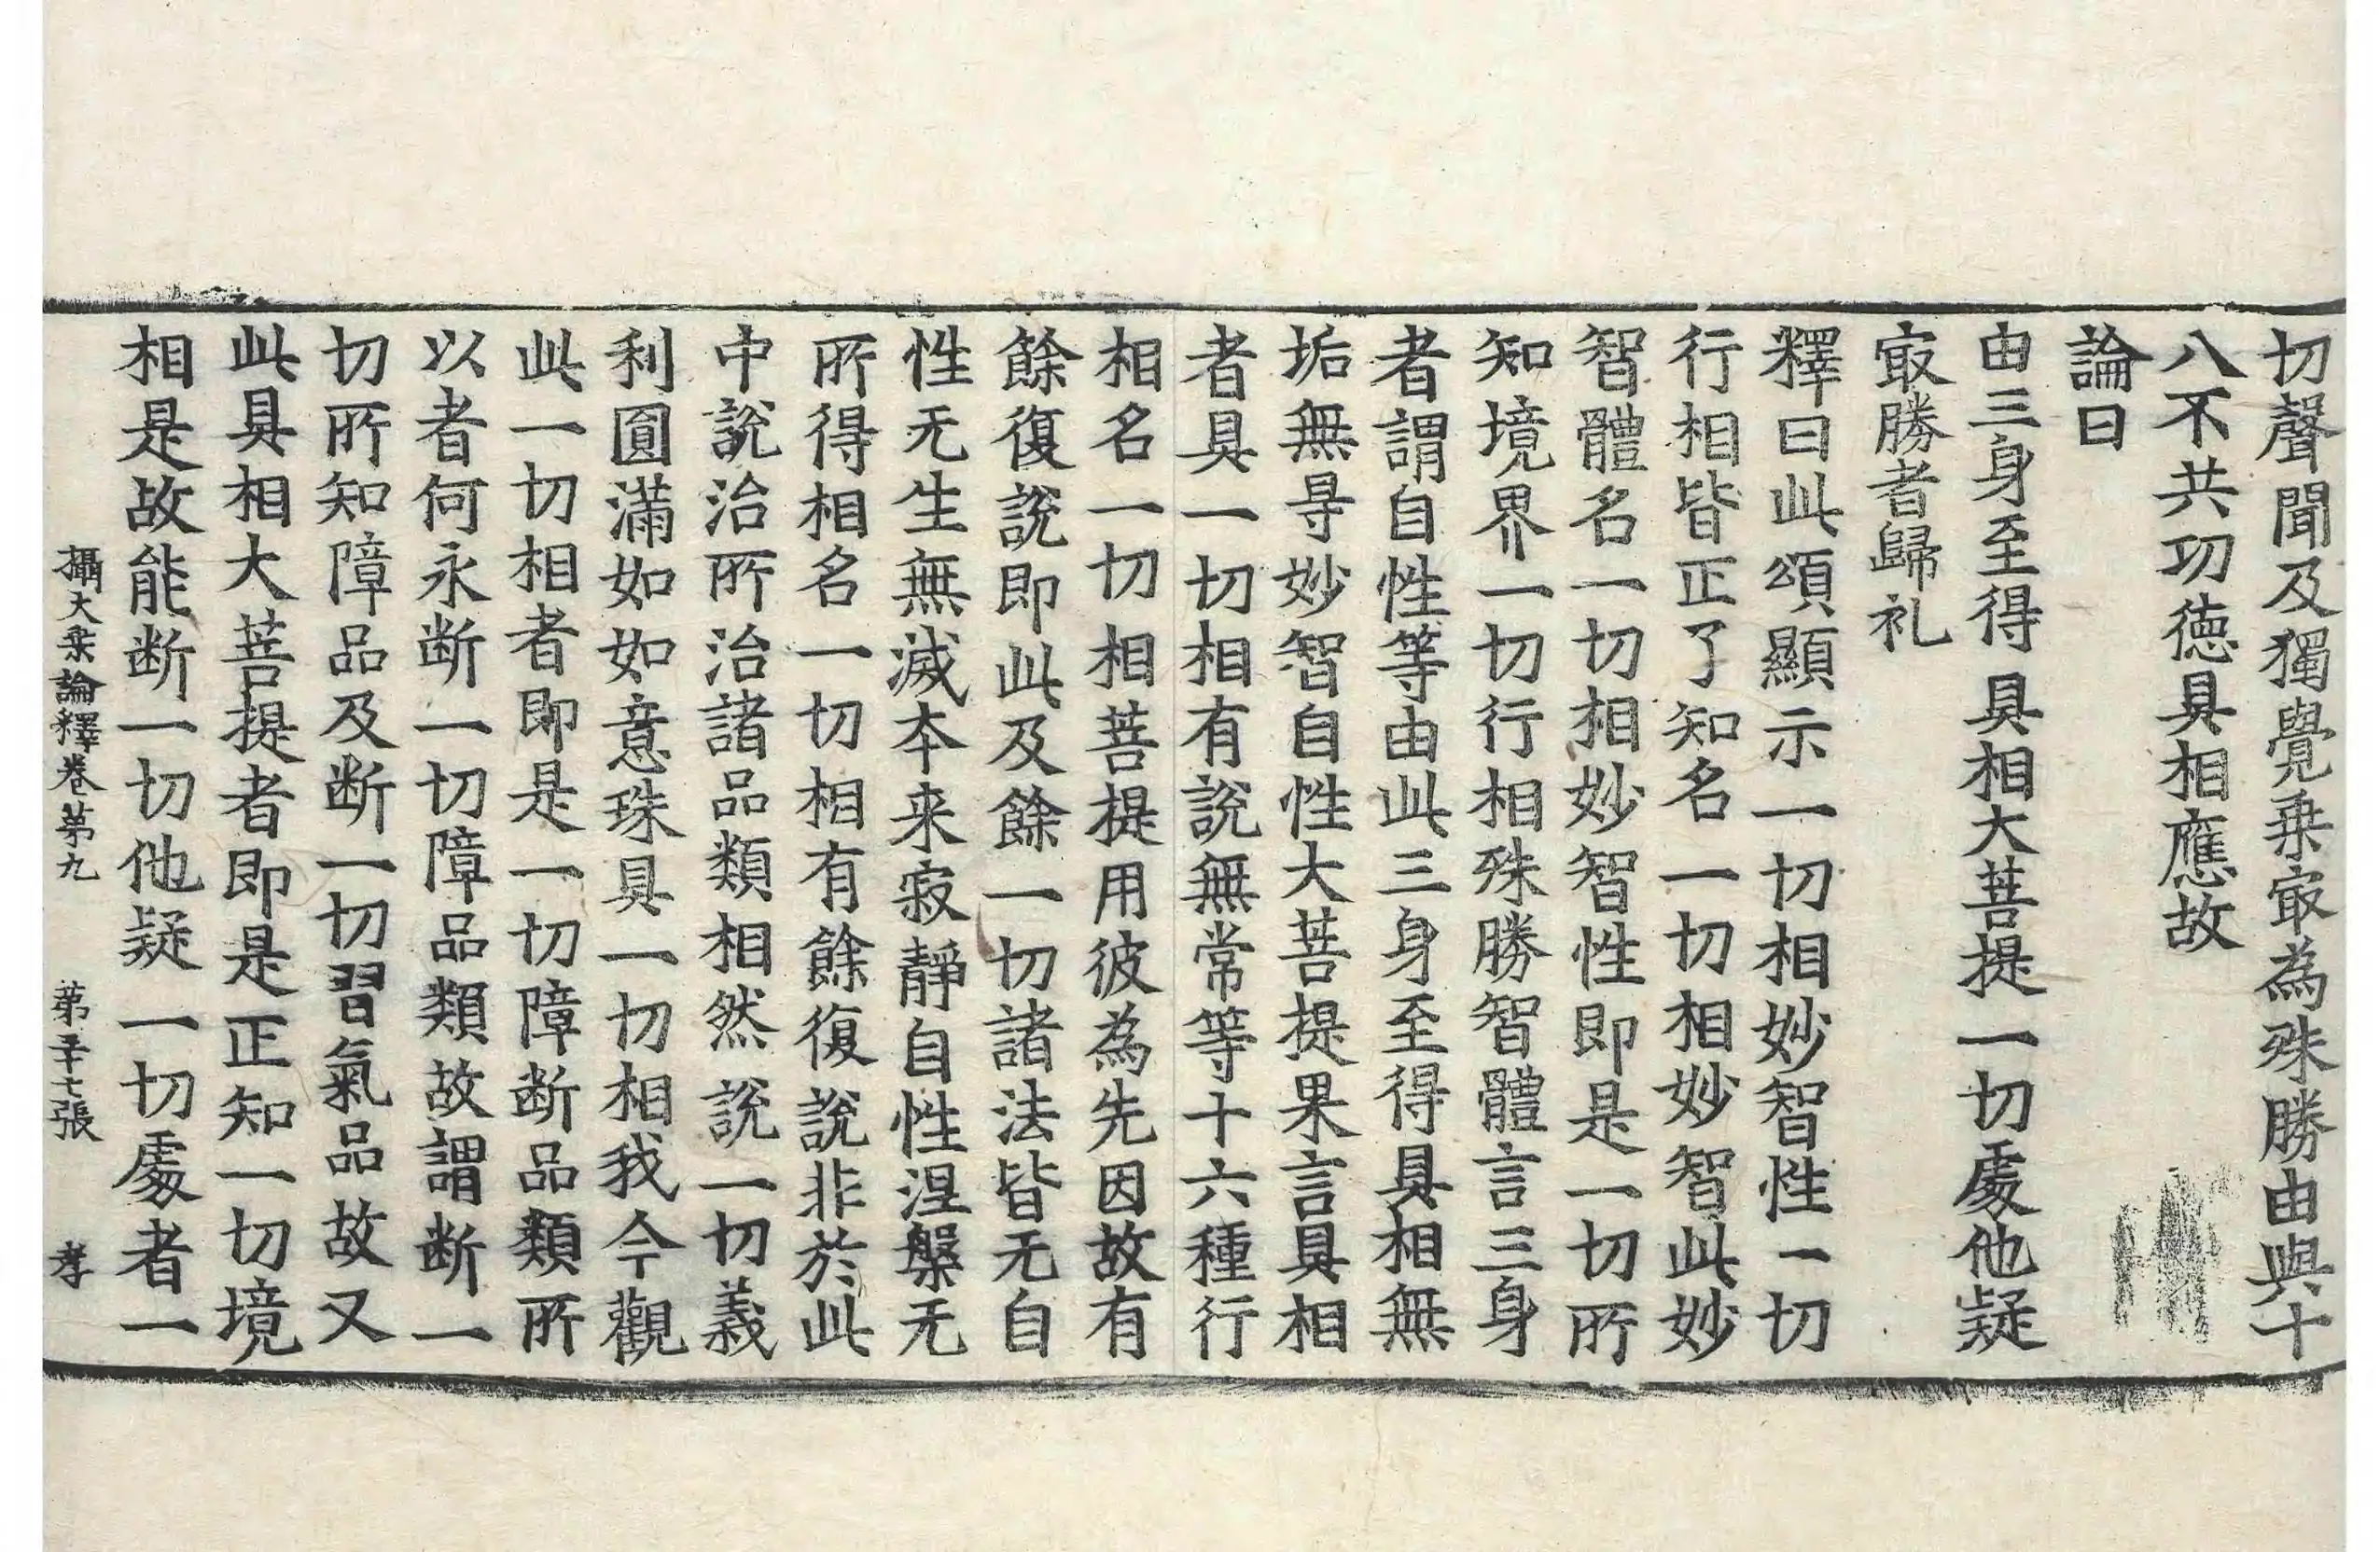 切聲聞及獨覺乗㝡為殊勝由與十
八不共功徳具相應故
論曰
由三身至得　具相大菩提　一切䖏他疑
㝡勝者歸礼
釋曰此頌顯示一切相妙智性一切
行相皆正了知名一切相妙智此妙
智體名一切相妙智性即是一切所
知境界一切行相殊勝智體言三身
者謂自性等由此三身至得具相無
垢無㝵妙智自性大菩提果言具相
者具一切相有說無常等十六種行
相名一切相菩提用彼為先因故有
餘復說即此及餘一切諸法皆无自
性无生無滅本来寂靜自性涅槃无
所得相名一切相有餘復說非於此
中說治所治諸品類相然說一切義
利圓滿如如意珠具一切相我今觀
此一切相者即是一切障断品類所
以者何永断一切障品類故謂断一
切所知障品及断一切習氣品故又
此具相大菩提者即是正知一切境
相是故能断一切他疑一切䖏者一
攝大乗論釋卷第九　第二十七張　孝